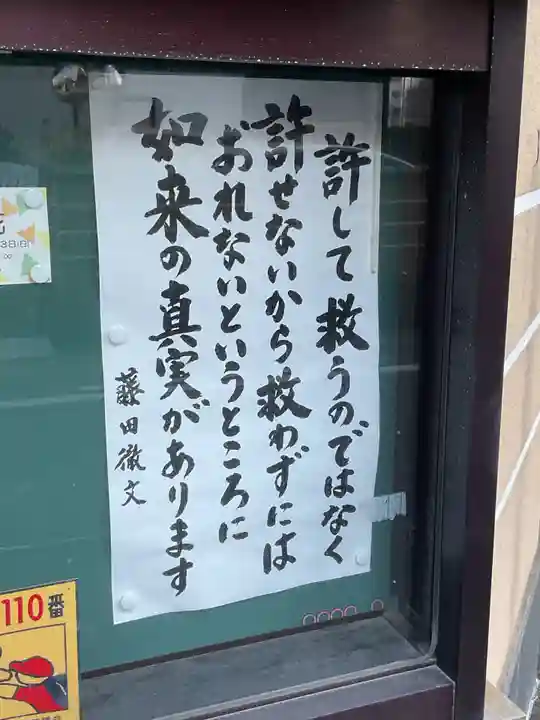 許して救うのではなく
許せないから救わずには
おれないというところに
如来の真実があります
藤田徹文
3日(日)
110番